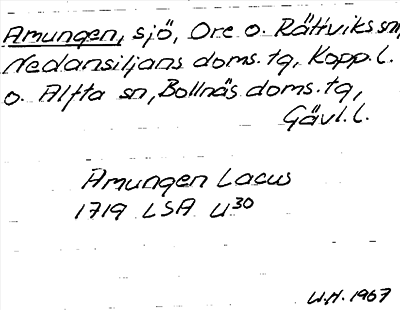 Amungen, sjö, Ore o. Rättviks snr,
Nedansiljans doms. tg, Kopp. l.
o. Alfta sn, Bollnäs doms. tg,
Gävl. l.
Amungen Lacus
1719 LSA U30
W.H. 1967